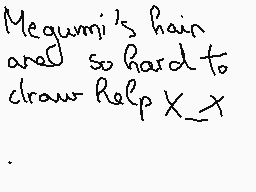 Megumi's hair
are so hard to
draw help X_X
.